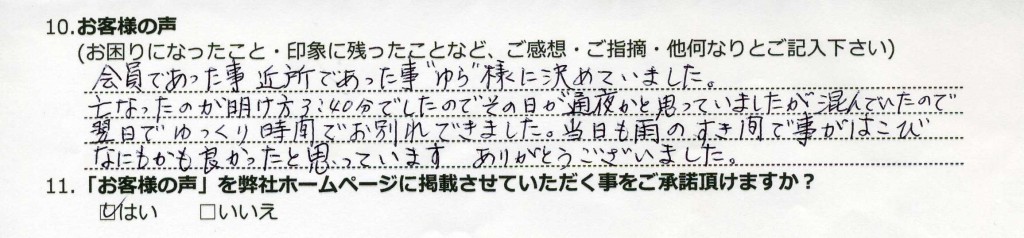 10.お客様の声
(お困りになったこと・印象に残ったことなど、ご感想・ご指摘・他何なりとご記入下さい)
会員であった事 近所であった事"ゆら"様に決めていました。
亡なったのが明け方3:40分でしたのでその日が通夜かと思っていましたが混んでいたので
翌日でゆっくり時間でお別れできました。当日も雨のすき間で事がはこび
なにもかも良かったと思っています ありがとうございました。
11.「お客様の声」を弊社ホームページに掲載させていただく事をご承諾頂けますか?
☑はい □いいえ